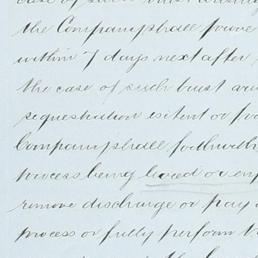 the Company shall prove
within 7 days next after
the case of such
sequestration extent or
Company shall forthwith
process being levied or
remove discharge or pay
process or fully perform